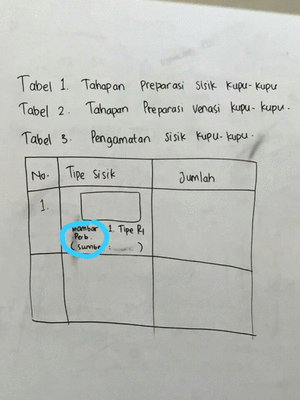 Tabel 1. Tahapan Preparasi Sisik Kupu-Kupu
Tabel 2. Tahapan Preparasi Venasi Kupu-Kupu.
Tabel 3. Pengamatan Sisik Kupu-Kupu.
No. Tipe Sisik Jumlah
1.
1. Tipe
Perb.
(Sumber )